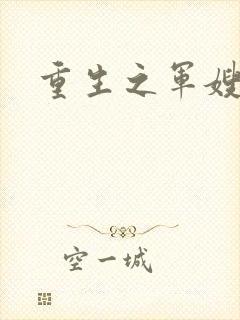 重生之军嫂
空一城